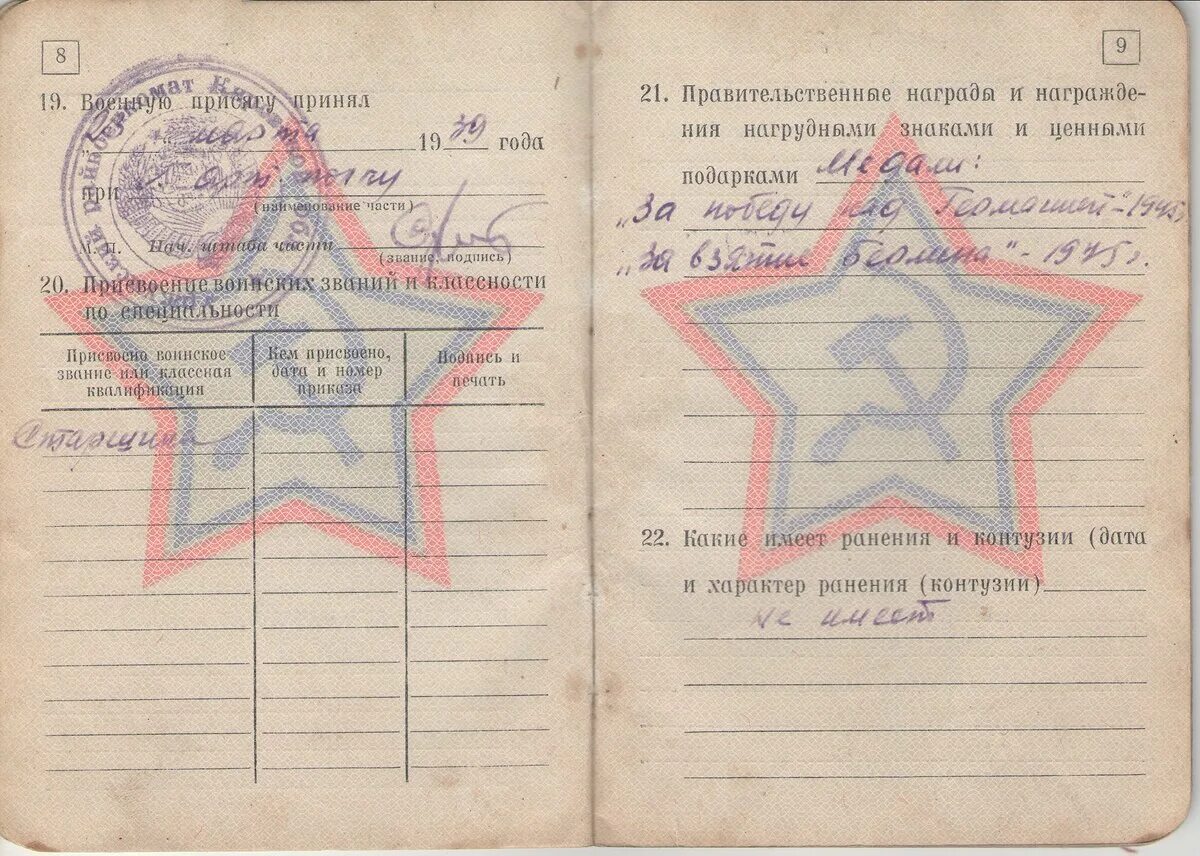 8
19. Военную присягу принял
марта 1939 года
при арт полку
(наименование части)
М. П. Нач. штаба части
(звание, подпись)
20. Присвоение воинских званий и классности
по специальности
Присвоено воинское
звание или классная
квалификация
Кем присвоено,
дата и номер
приказа
Подпись и
печать
Старшина
9
21. Правительственные награды и награжде-
ния нагрудными знаками и ценными
подарками Медали:
„За победу над Германией" - 1945
„За взятие Берлина" - 1945 г.
22. Какие имеет ранения и контузии (дата
и характер ранения (контузии)
не имеет